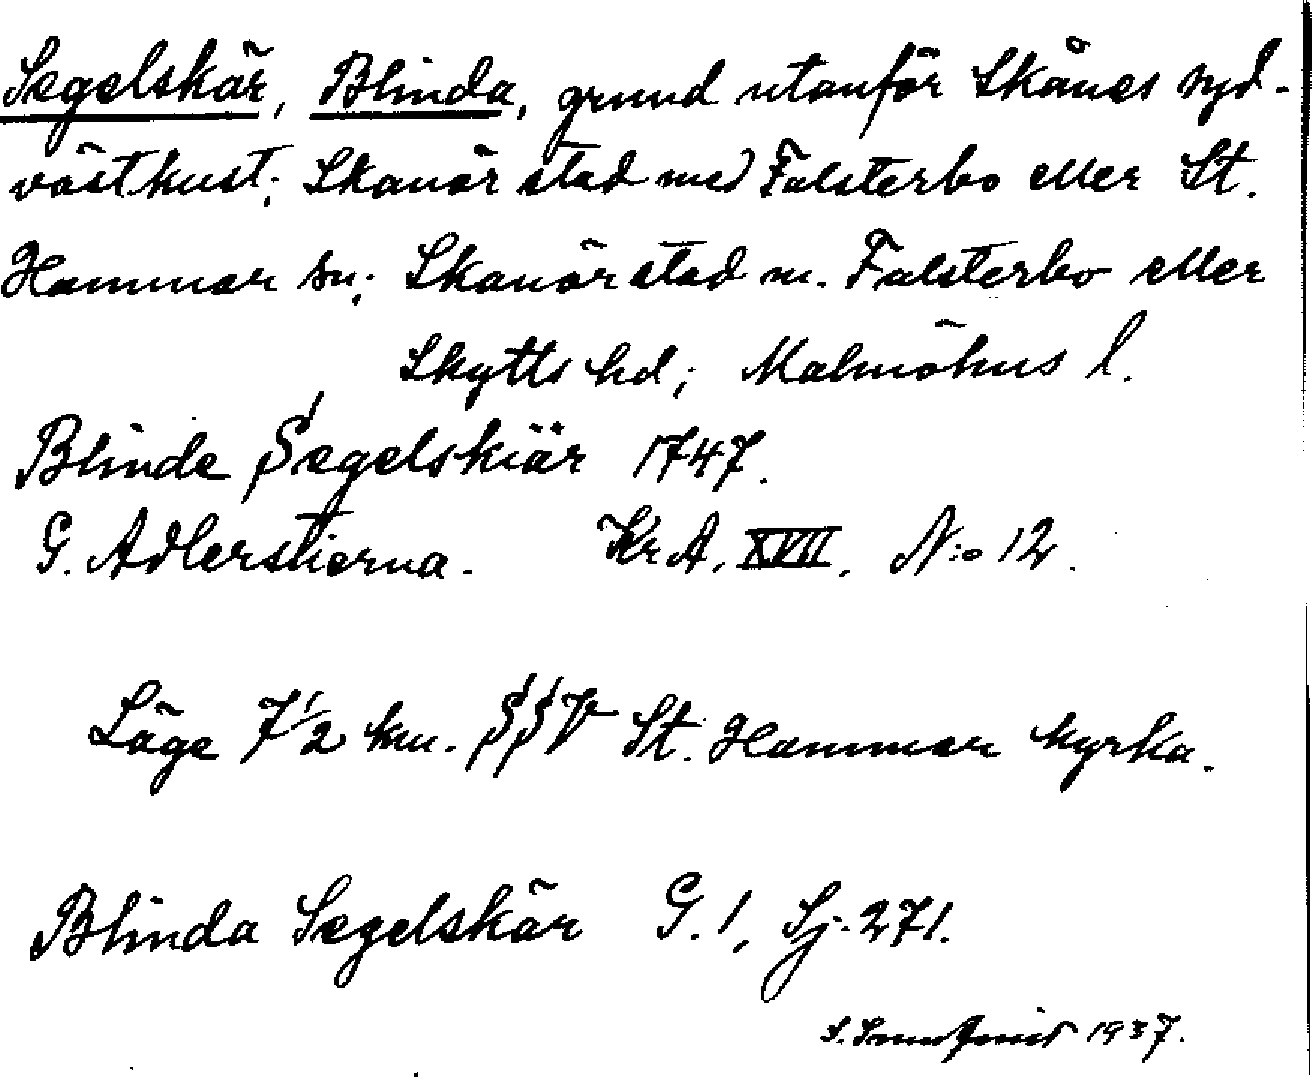 Segelskär, Blinda, grund utanför Skånes syd-
västkust; Skanör stad med Falsterbo eller St.
Hammar sn; Skanör stad m. Falsterbo eller
Skytts hd; Malmöhus l.
Blinde Segelskiär 1747.
G. Adlerstierna. Kr A. XVII. N:o 12.
Läge 7 1/2 km. SSV St. Hammar kyrka.
Blinda Segelskär G. 1, Sj. 271.
S. 1937.